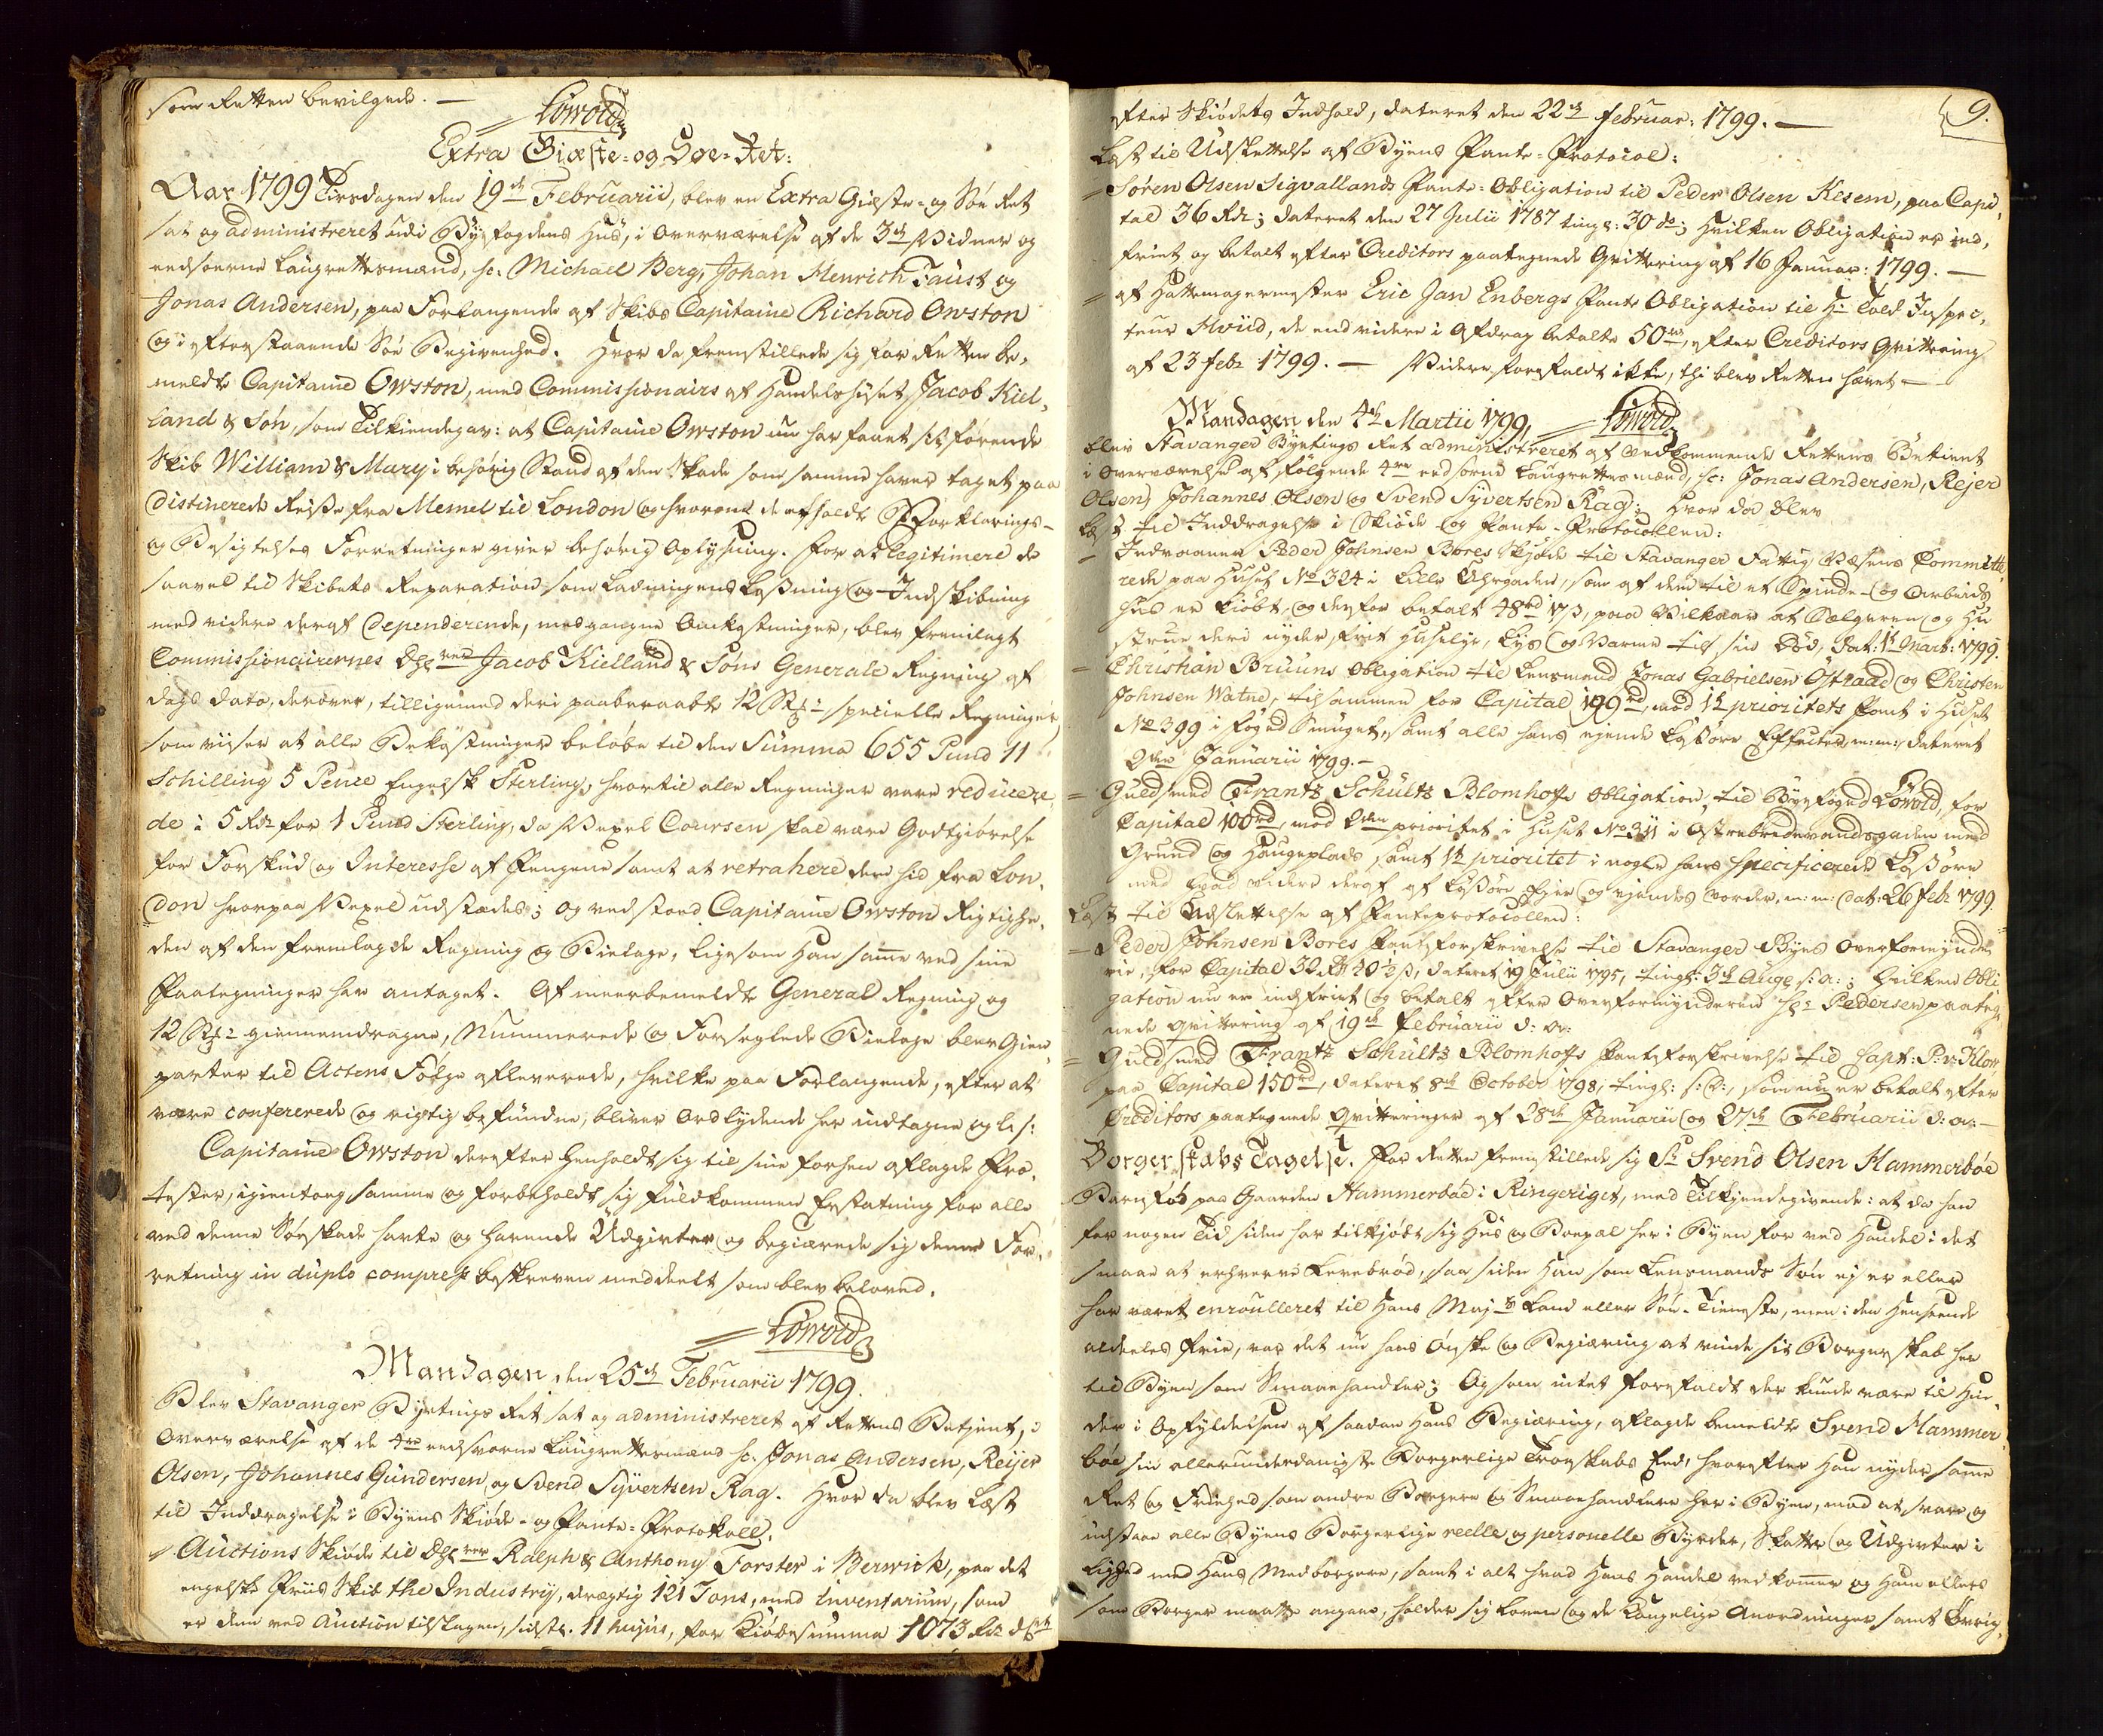 som Retten bevilgede. —
Lowold
Extra Giæste- og Soe-Ret:
Aar 1799 Tirsdagen den 19de Februarii, blev en Extra Giæste- og Söe Ret
sat og administreret udi Byefogdens Huus, i Overværelse af de 3de Vidner og
eedsvorne Laugrettesmænd, sc: Michael Berg, Johan Henrich Faust og
Jonas Andersen, paa Forlangende af Skibs Capitaine Richard Owston
og i efterstaaende Söe Begivenhed. Hvor da fremstillede sig for Retten be-
meldte Capitaine Owston, med Commissionairs af Handelshuset Jacob Kiel-
land & Sön, som Tilkiendegav: at Capitaine Owston nu har faaet sit förende
Skib William & Mary i behörig Stand af den Skade som samme haver taget paa
distinerede Reise fra Memel til London og hvorom de afholdte Söe Forklarings-
og Besigtelses Forretninger giver behörig Oplysning. For at legitimere de
saavel til Skibets Reparation som Ladningens Losning og Indskibning
med videre deraf dependerende, medgangne Omkostninger, blev fremlagt
Commissionairernes Dhrr Jacob Kielland & Söns Generale Regning af
Dags Dato, derover, tilligemed deri paaberaabte 12 St: specielle Regninger,
som viser at alle Bekostninger belöbe til den Summa 655 Pund 11
Schilling 5 Pence Engelsk Sterling, hvortil alle Regninger vare reducere-
de i 5 Rdr for 1 Pund Sterling, da Vexel Coursen skal være Godtgiörelse
for Forskud og Interesse af Pengene samt at retrahere dem hid fra Lon-
don hvorpaa Vexel udstædes; og vedstoed Capitaine Owston Rigtighe-
den af den fremlagde Regning og Bielage, ligesom han samme ved sine
Paategninger har antaget. Af meerbemeldte General Regning og
12 St: giennemdragne, Nummerede og Forseglede Bielage blev Gien-
parter til Actens Fölge afleverede, hvilke paa Forlangende, efter at
være confererede og rigtig befundne, bliver Ordlydende her indtagne og l: s:
Capitaine Owston derefter henholdt sig til sine forhen aflagde Pro-
tester, igientoeg samme og forbeholdt sig fuldkommen Erstatning for alle
ved denne Söeskade havte og havende Udgivter og begiærede sig denne For-
retning in duplo compress beskreven meddeelt som blev beloved.
Lowold
Mandagen den 25de Februarii 1799.
Blev Stavanger Byetings Ret sat og administreret af Rettens Betjent, i
Overværelse af de 4re eedsvorne Laugrettesmænd sc. Jonas Andersen, Reijer
Olsen, Johannes Gundersen og Svend Syvertsen Rag. Hvor da blev læst
til Inddragelse i Byens Skiöde- og Pante-Protokoll.
Auctions Skiöde til Dhrr Ralph & Anthony Forster i Berwick, paa det
engelske Priis Skib the Industry, drægtig 121 Tons, med Inventarium, som
er dem ved Auction tilslagen, sidstl. 11 hujus, for Kiöbesumma 1073 Rdr
9.
efter Skiödets Indhold, dateret den 22de Februar: 1799. —
Læst til Udslettelse af Byens Pante-Protocol:
Sören Olsen Sigvallands Pante-Obligation til Peder Olsen Klesem, paa Capi-
tal 36 Rdr; dateret den 27 Julii 1787 tingl: 30 do; hvilken Obligation er ind-
friet og betalt efter Creditors paategnede Qvittering af 16 Januar: 1799. —
af Hattemagermester Eric Jan Enbergs Pante Obligation til Hr Told Inspec-
teur Hviid, de end videre i Afdrag betalte 50 rd, efter Creditors Qvittering
af 23 Febr 1799. — Videre forefaldt ikke, thi blev Retten hævet —
Lowold
Mandagen den 4de Martii 1799,
blev Stavanger Byetings Ret administreret af vedkommende Rettens Betient
i Overværelse af fölgende 4re eedsorne Laugrettesmænd, sc: Jonas Andersen, Rejer
Olsen, Johannes Olsen og Svend Syvertsen Rag; hvor da blev
Læst til Inddragelse i Skiöde- og Pante-Protocollen:
Indvaaner Peder Johnsen Bores Skjöde til Stavanger Fattig Væsens Committe-
rede paa Huset No 324 i Lille, som af dem til et Spinde- og Arbeids
Huus er kiöbt, og derfor betalt 48 rd, paa Vilkaar at Sælgeren og Hu-
strue deri nyder frit Huuslye, Lys og Varme til sin Död, dat: 1 Mart: 1799.
Christian Bruuns Obligation til Lensmand Jonas Gabrielsen Östraad og Christen
Johnsen Watne, tilsammen for Capital 199 rd, mod 1te prioritets Pant i Huset
No 399 i Foged Smuget, samt alle hans ejende Lösöre Effecter m: m: dateret
2den Januarii 1799. —
Guldsmed Frantz Schultz Blomhoffs Obligation, til Byefoged Lowold, for
Capital 100 rd, mod 2den prioritet i Huset No 311 i Östrebredevandsgaden med
Grund og Haugeplads samt 1te prioritet i nogle hans specificerede Lösöre
med hvad videre deraf af Lösöre Ejer og ejendes vorder, m: m: dat: 26 Febr 1799.
Læst til Udslettelse af Panteprotocollen:
Peder Johnsen Bores Panteforskrivelse til Stavanger Byes Overformynde-
rie, for Capital 32 Rdr 40½ s, dateret 19 Julii 1795, tingl: 3de Aug s: a:; hvilken Obli-
gation nu er indfriet og betalt efter Overformynderen Hr Pedersen paateg-
nede qvittering af 19de Februarii d: a:
Guldsmed Frantz Schultz Blomhoffs Panteforskrivelse til Capt: P: v: Klow
paa Capital 150 rd, dateret 8de October 1798, tingl: s: D:, som nu er betalt efter
Creditors paategnede Qvitteringer af 28de Januarii og 27de Februarii d: a: —
Borgerskabs Tagelse. For Retten fremstillede sig Sr Svend Olsen Hammerböe
Barnföd paa Gaarden Hammerböe i Ringeriget, med Tilkjendegivende: at da han
for nogen Tid siden har tilkjöbt sig Huus og Boepæl her i Byen for ved Handel i det
smaae at erhverve Levebröd, saa siden han som Lensmands Sön ej er eller
har været enroulleret til Hans Majts Land eller Söe-Tieneste, men i den Henseende
aldeeles frie, var det nu hans Önske og Begiæring at vinde sit Borgerskab her
til Byen som Smaaehandler; Og som intet forefaldt der kunde være til Hin-
der i Opfyldelsen af saadan hans Begiæring, aflagde bemeldte Svend Hammer-
böe sin allerunderdanigste Borgerlige Troeskabs Eed, hvorefter han nyder samme
Ret og Friehed som andre Borgere og Smaaehandlere her i Byen, mod at svare og
udstaae alle Byens Borgerlige reelle og personelle Byrder, Skatter og Udgivter i
Lighed med hans Medborgere, samt i alt hvad hans Handel vedkommer og ham ellers
som Borger maatte angaae, holder sig Loven og de Kongelige Anordninger samt Övrig-